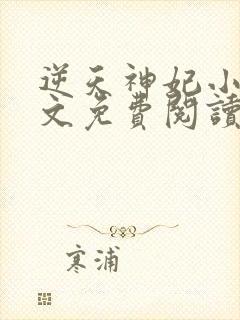 逆天神妃小
文免費閱讀
寒浦